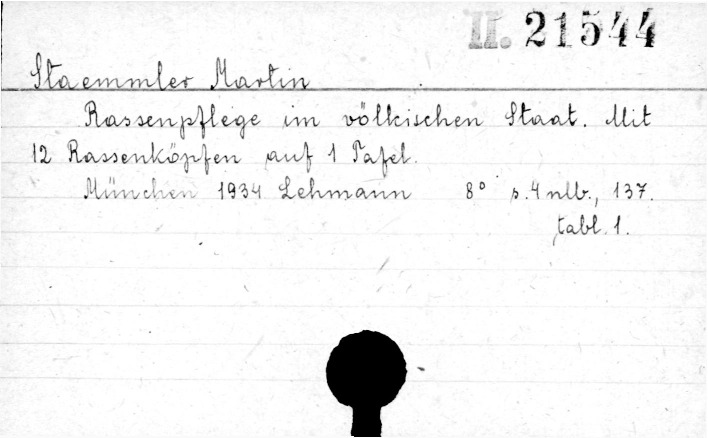 II. 21544
Staemmler Martin
Rassenpflege im völkischen Staat. Mit
12 Rassenköpfen auf 1 Tafel.
München 1934 Lehmann 8° p. 4 nlb., 137.
tabl. 1.